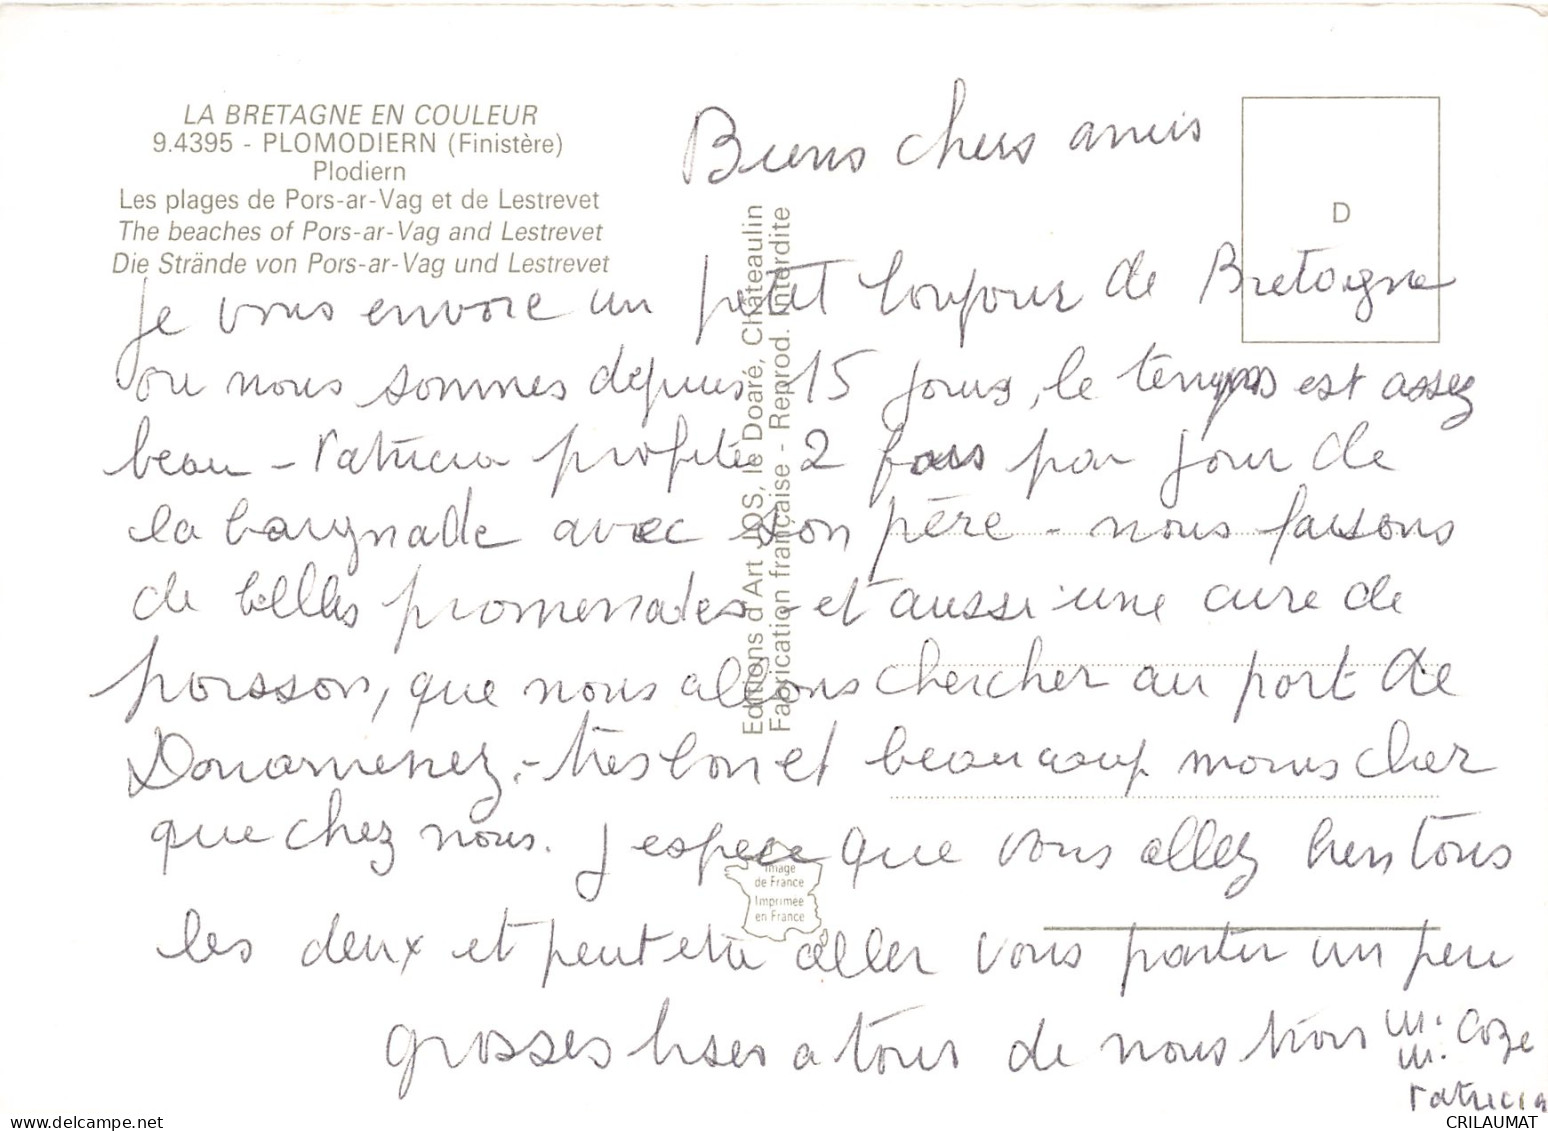 LA BRETAGNE EN COULEUR
9.4395 - PLOMODIERN (Finistère)
Plodiern
Les plages de Pors-ar-Vag et de Lestrevet
The beaches of Pors-ar-Vag and Lestrevet
Die Strände von Pors-ar-Vag und Lestrevet
Editions d'Art JOS, le Doaré, Châteaulin
Fabrication française - Reprod. Interdite
D
Biens chers amis
Je vous envoie un petit bonjour de Bretagne
ou nous sommes depuis 15 jours, le temps est assez
beau - Patricia profite 2 fois par jour de
la baignade avec son père - nous faisons
de belles promenades - et aussi une cure de
poisson, que nous allons chercher au port de
Douarnenez, - très bon et beaucoup moins cher
que chez nous. J espère que vous allez bien tous
les deux et peut etre aller vous partir un peu
grosses bises a tous de nous trois M. Coze
M.
Patricia
Image
de France
Imprimée
en France
CRILAUMAT